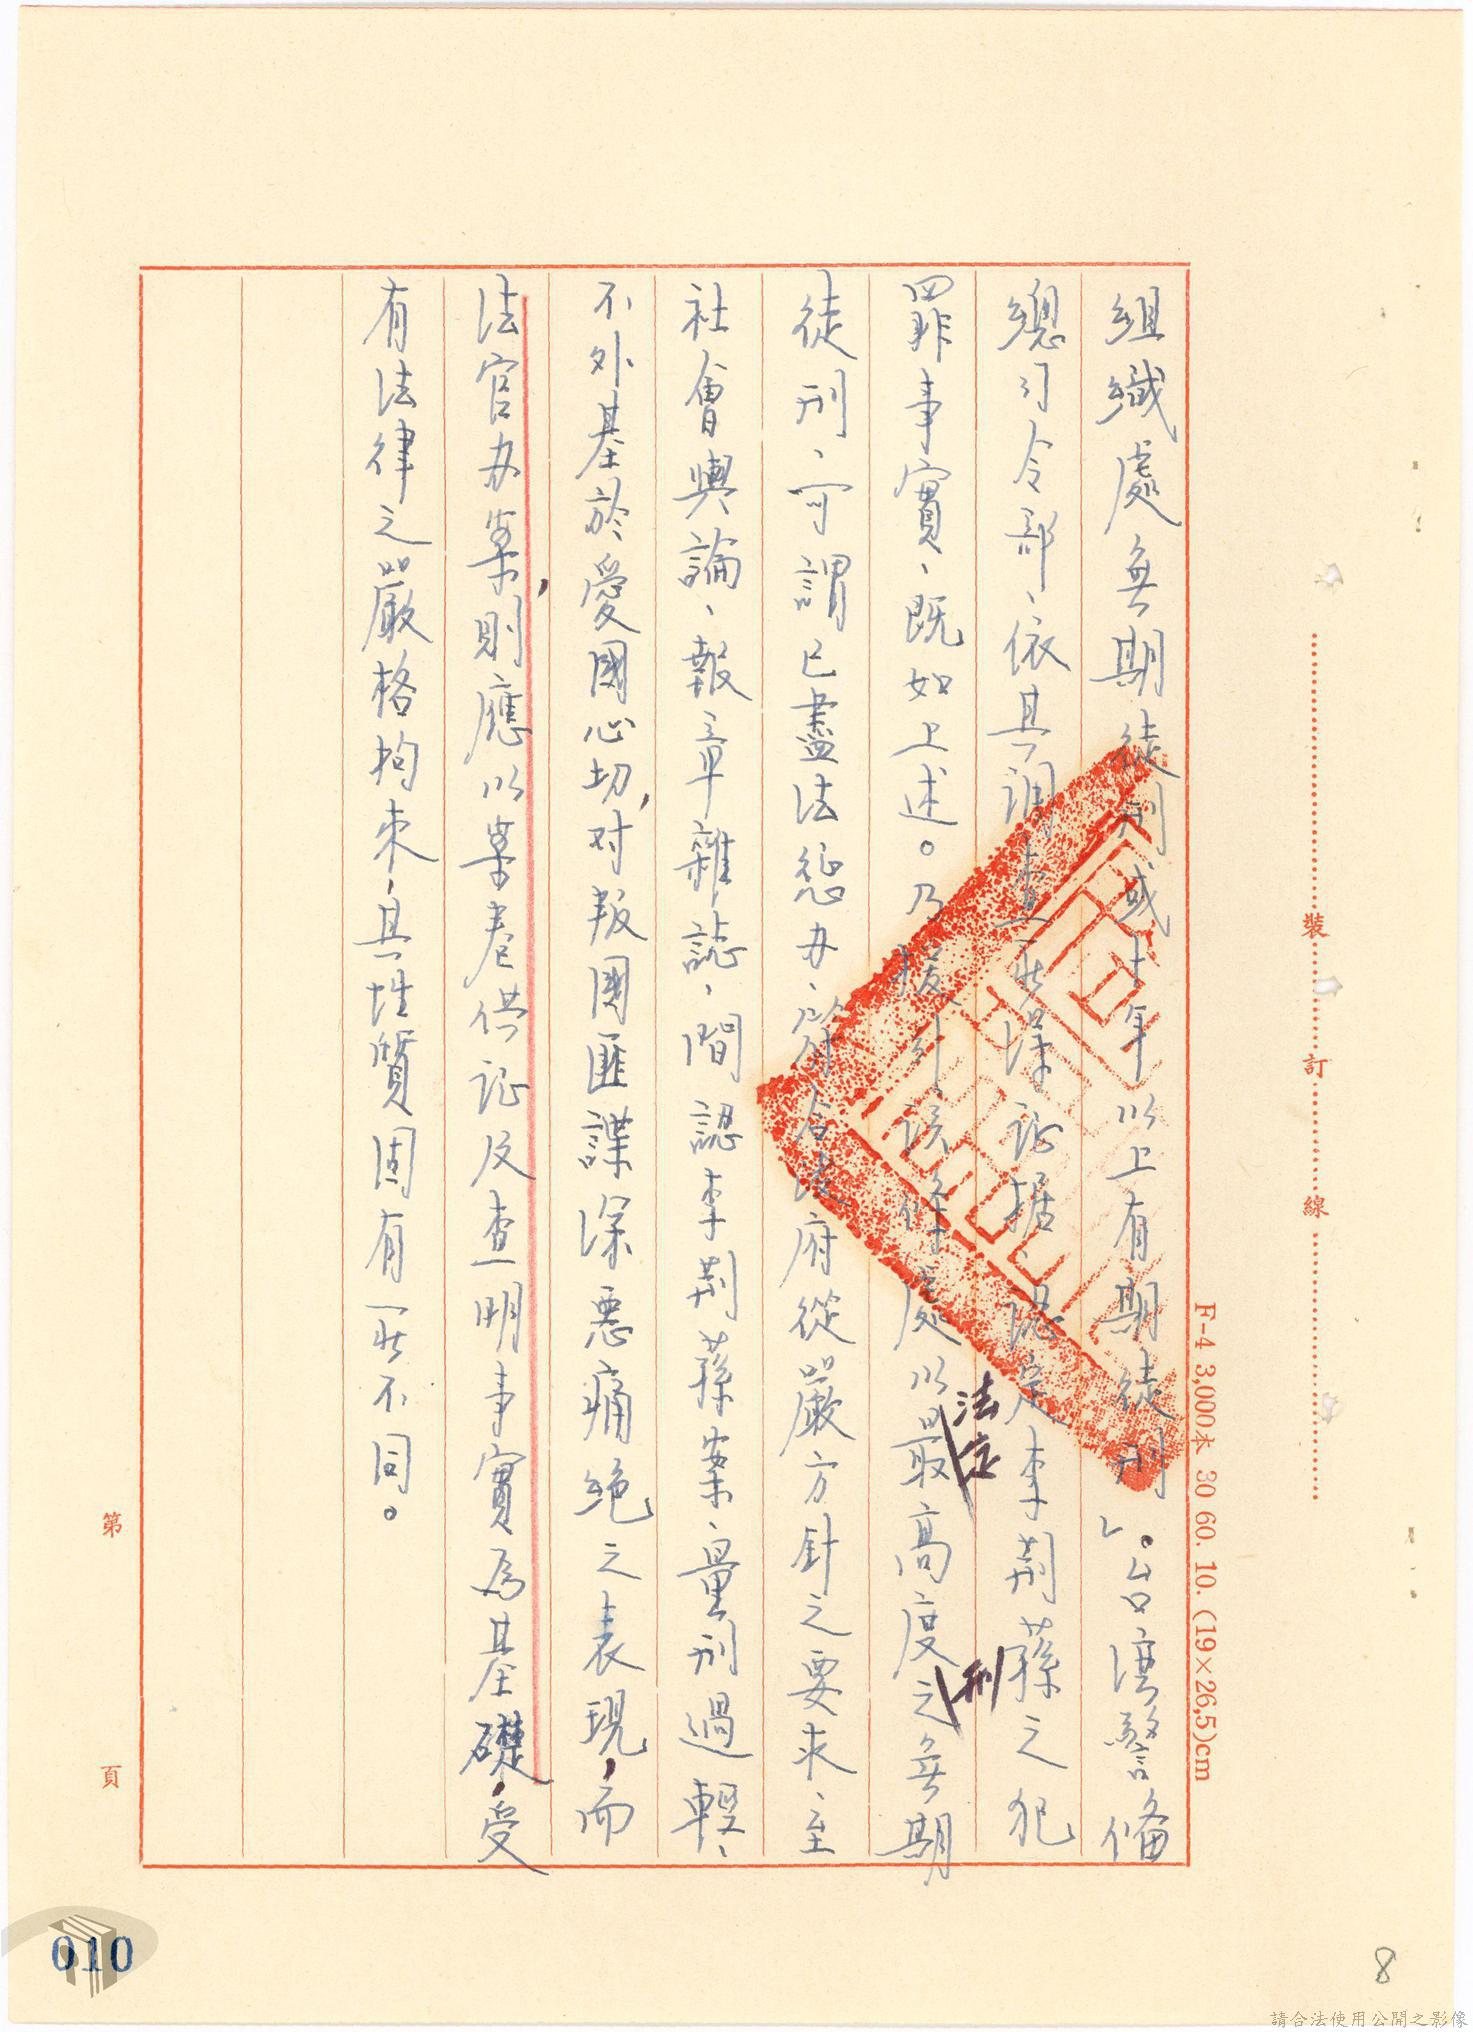 組織處無期徒刑或十年以上有期徒刑」。台灣警備
總司令部、依其調查所得証据、認定李荊蓀之犯
罪事實、既如上述。乃援引該條處以最高度之無期
法定
刑
徒刑、可謂已盡法惩办、符合政府從嚴方針之要求、至
社會輿論、報章雜誌、間認李荊蓀案、量刑過輕、
不外基於愛國心切，对叛国匪諜深惡痛絶之表現，而
法官办案，則應以案卷供証及查明事實為基礎，受
有法律之嚴格拘束，其性質固有所不同。
裝
訂
線
F-4 3,000本 30 60. 10. (19×26,5)cm
第
頁
010
8
請合法使用公開之影像